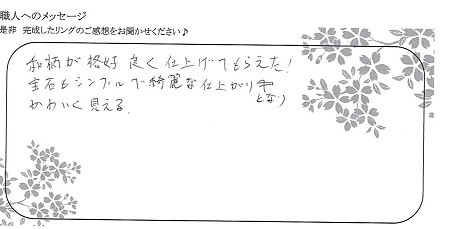 職人へのメッセージ
是非 完成したリングのご感想をお聞かせください♪
和柄が格好良く仕上げてもらえた!
宝石もシンプルで綺麗な仕上がり
となり
かわいく見える.